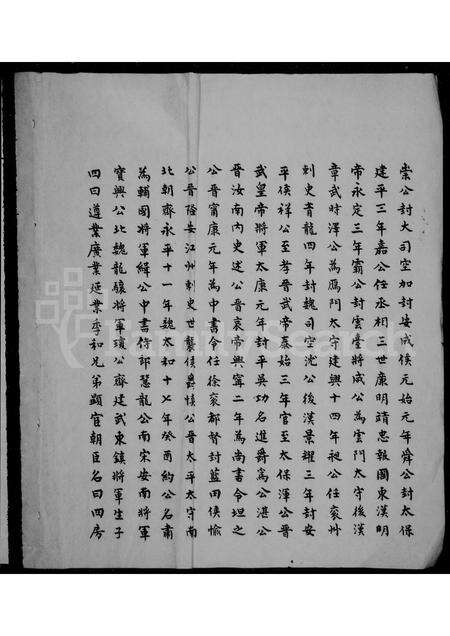 崇公封大司空加封安成侯元始元年舜公封太保
建平三年嘉公任丞相三世廉明靖忠報國東漢明
帝永定三年霸公封雲臺將成公為雲門太守後漢
章武時澤公為鴈門太守建興十四年昶公任衮州
刺史青龍四年封魏司空沈公後漢景耀三年封安
平侯祥公至孝晉武帝泰始三年官至太保渾公晉
武皇帝將軍太康元年封平吳功名進爵為公湛公
晉汝南內史述公晉哀帝興寧二年為尚書令坦之
公晉甯康元年為中書令任徐衮都督封藍田侯愉
公晉隆安江州刺史世襲侯爵愼公晉太平太守南
北朝齊永平十一年魏太和十七年癸酉約公名肅
為輔國將軍緝公中書侍郎慧龍公南宋安南將軍
寶興公北魏龍驤將軍瓊公齊建武東鎮將軍生子
四曰遵業廣業延業季和兄弟顯宦朝臣名曰四房